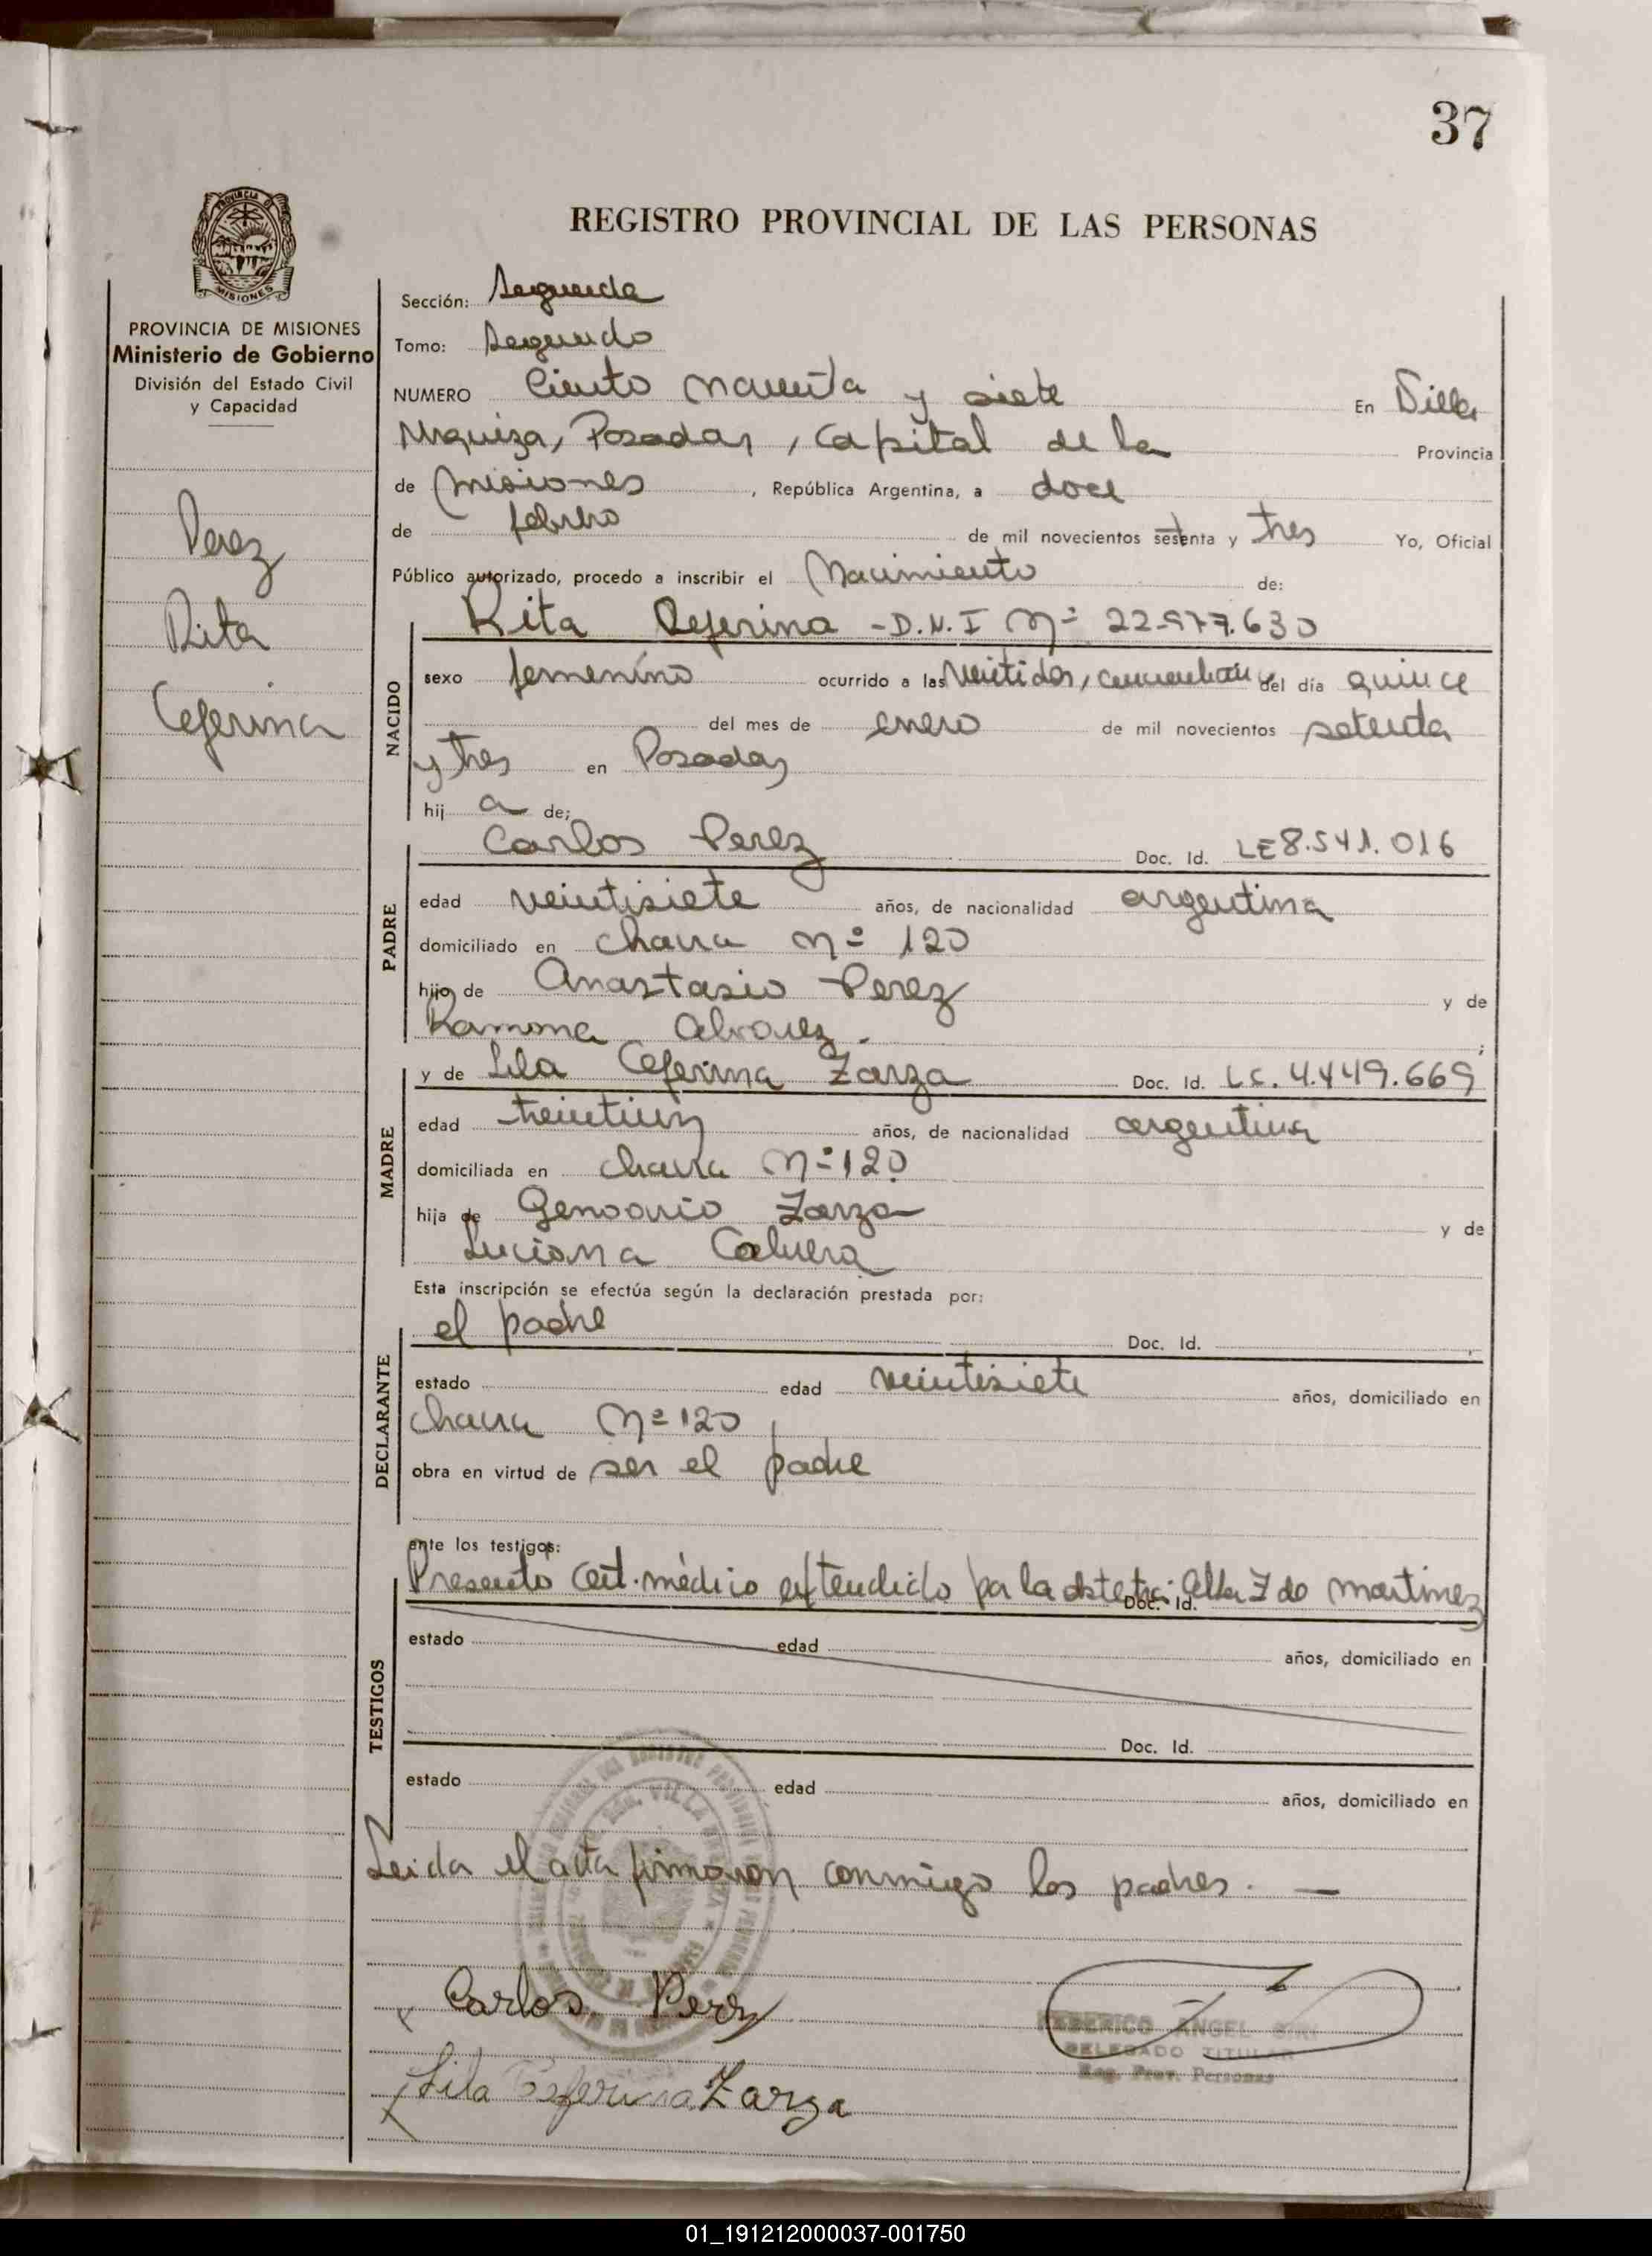 37
REGISTRO PROVINCIAL DE LAS PERSONAS
PROVINCIA DE
MISIONES
PROVINCIA DE MISIONES
Ministerio de Gobierno
División del Estado Civil
y Capacidad
Perez
Rita
Ceferina
Sección: Segunda
Tomo: Segundo
NUMERO Ciento noventa y siete En Villa
Urquiza, Posadas, Capital de la Provincia
de Misiones, República Argentina, a doce
de febrero de mil novecientos setenta y tres Yo, Oficial
Público autorizado, procedo a inscribir el Nacimiento de:
NACIDO
Rita Ceferina - D.N.I Nº 22.977.630
sexo femenino ocurrido a las Veintidos, del día quince
del mes de enero de mil novecientos setenta
y tres en Posadas
hij a de:
PADRE
Carlos Perez Doc. Id. LE 8.541.016
edad veintisiete años, de nacionalidad argentina
domiciliado en chacra nº 120
hijo de Anastasio Perez y de
Ramona Alvarez.
MADRE
y de Lila Ceferina Zarza Doc. Id. LC. 4.449.669
edad años, de nacionalidad argentina
domiciliada en chacra Nº 120
hija de Genoario Zarza y de
Luciana Cabrera
Esta inscripción se efectúa según la declaración prestada por:
DECLARANTE
el padre Doc. Id.
estado edad veintisiete años, domiciliado en
chacra Nº 120
obra en virtud de ser el padre
ante los testigos:
TESTIGOS
Presento cert. médico extendido por la obstetri. Doc. Id. Z de Martinez
estado edad años, domiciliado en
Doc. Id.
estado edad años, domiciliado en
Leida el acta firmaron conmigo los padres. —
Carlos Perez
Lila Ceferina Zarza
FEDERICO ANGEL
DELEGADO TITULAR
Reg. Prov. Personas
01_191212000037-001750